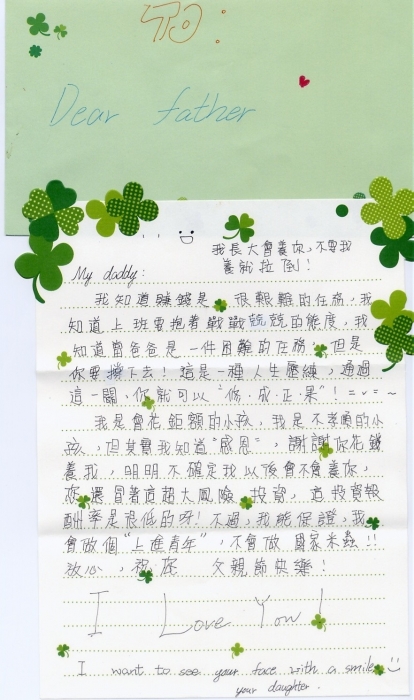 TO:
Dear father
我長大會養你,不要我
養就拉倒!
My daddy:
我知道賺錢是很艱難的任務,我
知道上班要抱著戰戰兢兢的態度,我
知道當爸爸是一件困難的任務,但是
你要撐下去!這是一種人生歷練,通過
這一關,你就可以"修成正果"!=v=~
我是會花鉅額的小孩,我是不孝順的小
孩,但其實我知道"感恩",謝謝你花錢
養我,明明不確定我以後會不會養你,
你還冒著這超大風險,投資,這投資報
酬率是很低的呀!不過,我能保證,我
會做個"上進青年",不會做國家米蟲!!
放心,祝您 父親節快樂!
I Love You!
I want to see your face with a smile
your daughter